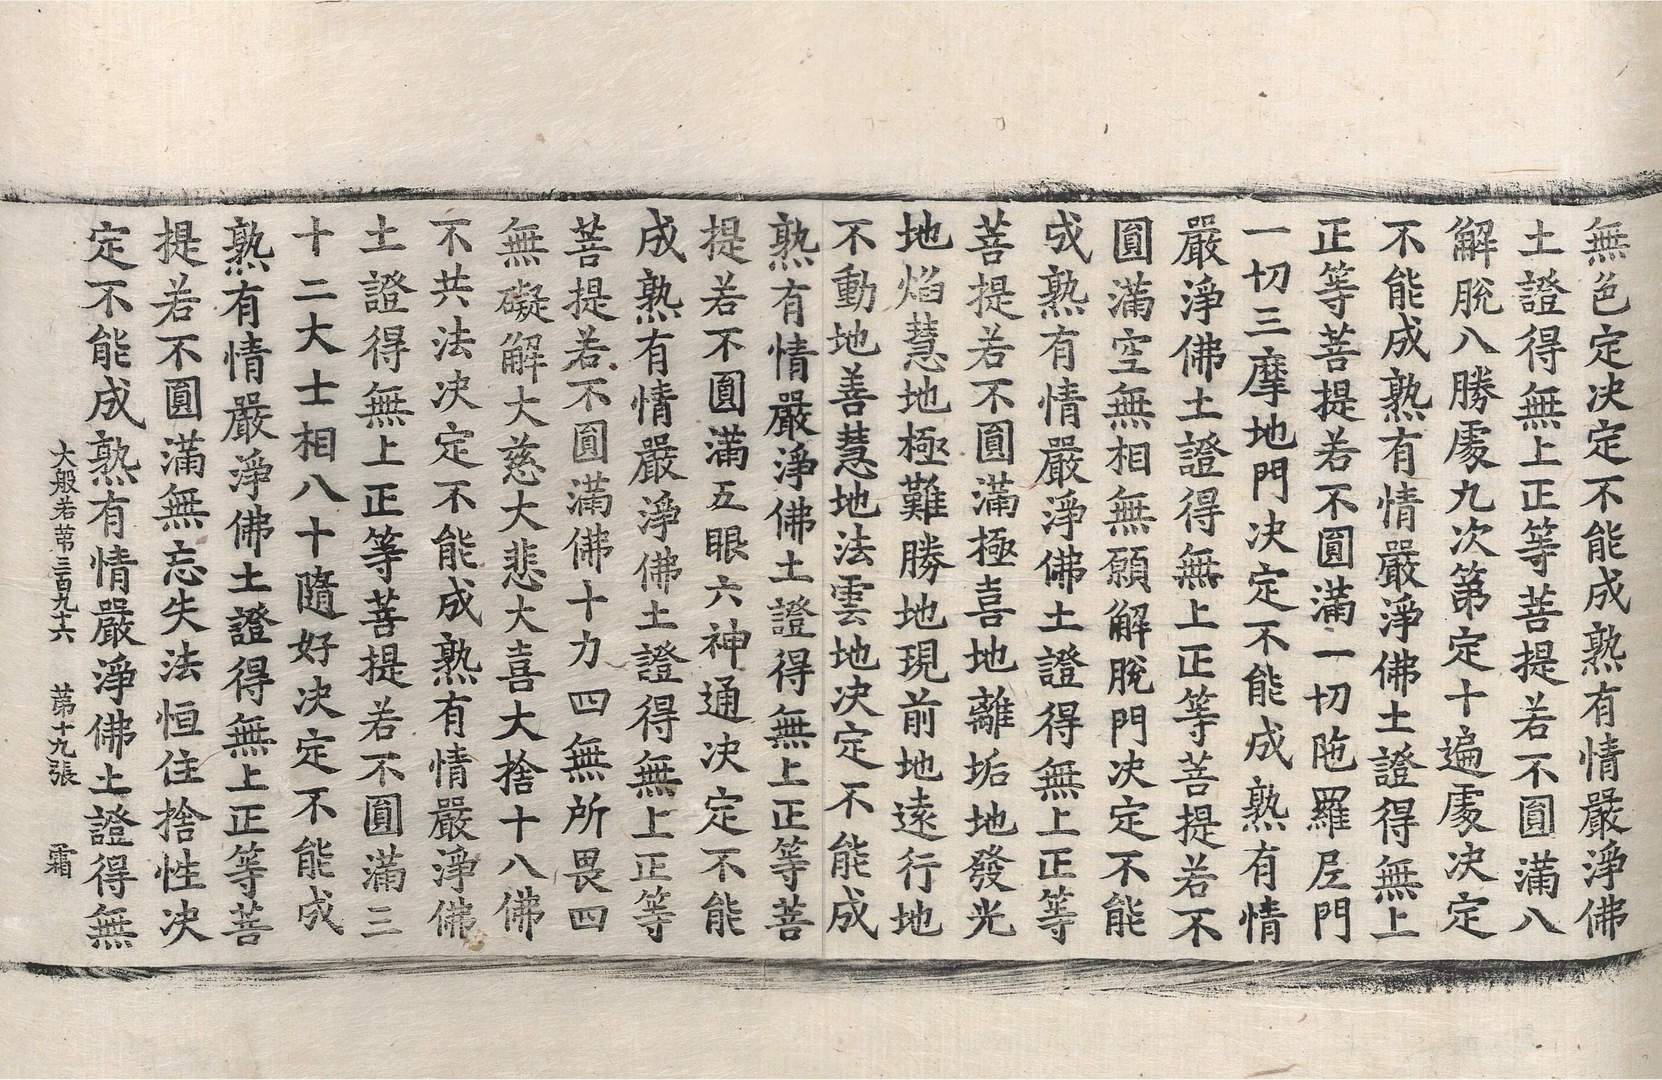 無色定决定不能成熟有情嚴淨佛
土證得無上正等菩提若不圓滿八
解脫八勝處九次第定十遍處决定
不能成熟有情嚴淨佛土證得無上
正等菩提若不圓滿一切陁羅尼門
一切三摩地門决定不能成熟有情
嚴淨佛土證得無上正等菩提若不
圓滿空無相無願解脫門决定不能
成熟有情嚴淨佛土證得無上正等
菩提若不圓滿極喜地離垢地發光
地焰慧地極難勝地現前地遠行地
不動地善慧地法雲地决定不能成
熟有情嚴淨佛土證得無上正等菩
提若不圓滿五眼六神通决定不能
成熟有情嚴淨佛土證得無上正等
菩提若不圓滿佛十力四無所畏四
無礙解大慈大悲大喜大捨十八佛
不共法决定不能成熟有情嚴淨佛
土證得無上正等菩提若不圓滿三
十二大士相八十隨好决定不能成
熟有情嚴淨佛土證得無上正等菩
提若不圓滿無忘失法恒住捨性决
定不能成熟有情嚴淨佛土證得無
大般若第三百九十六 第十九張 霜